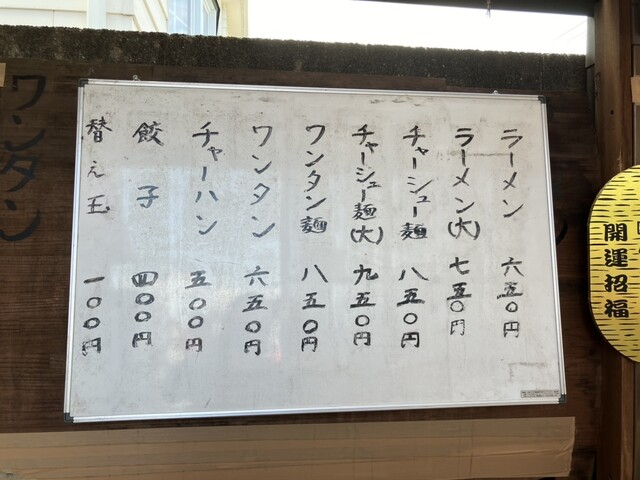 ラーメン 六五〇円
ラーメン(大) 七五〇円
チャーシュー麺 八五〇円
チャーシュー麺(大) 九五〇円
ワンタン麺 八五〇円
ワンタン 六五〇円
チャーハン 五〇〇円
餃子 四〇〇円
替え玉 一〇〇円
ワンタン
開運招福